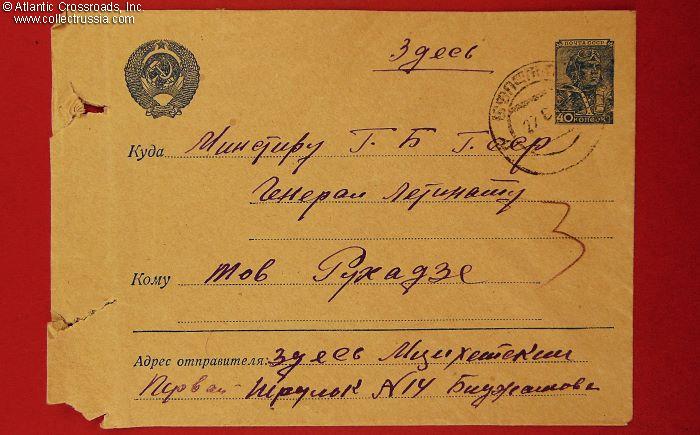 © Atlantic Crossroads, Inc
www.collectrussia.com
Здесь
ПОЧТА СССР
40 КОПЕЕК
27 6
Куда Минстру Г. Б Г. ССР
Генерал Летинанту
Кому тов Рухадзе
Адрес отправителя: здесь Мцихетский
Первая N 14